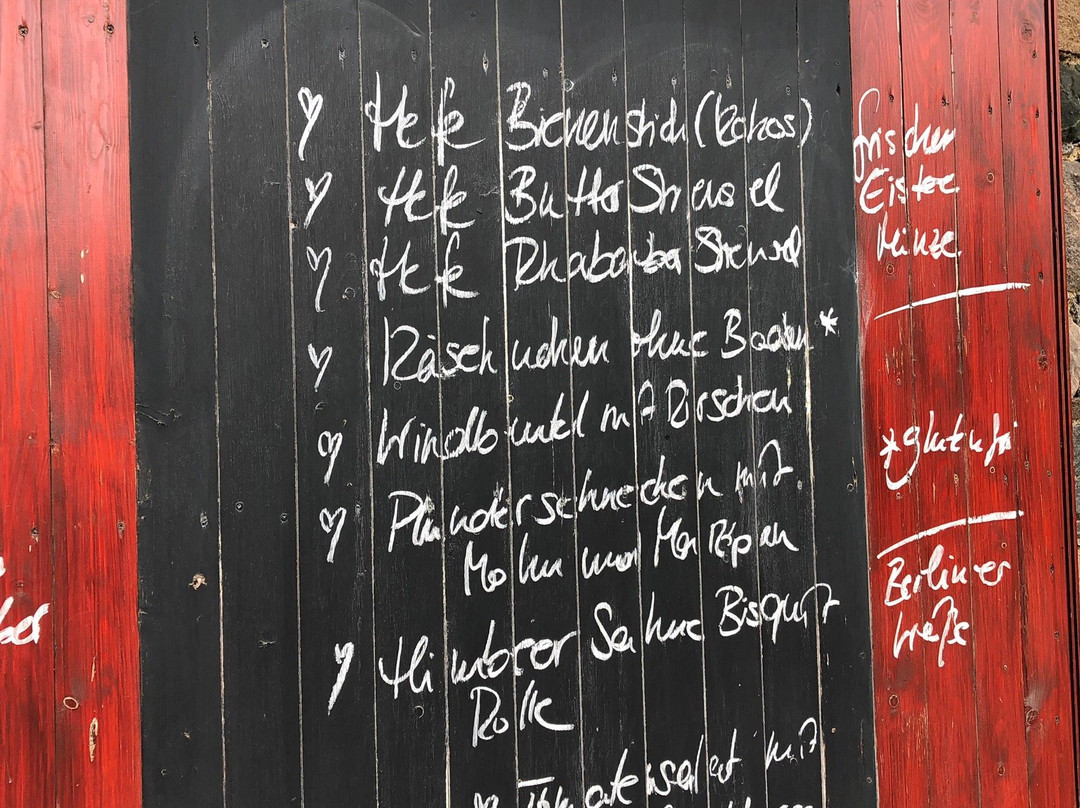 Hefe Bienenstich (Kokos)
Hefe Butter Streusel
Hefe Rhabarber Streusel
Käsekuchen ohne Boden*
Windbeutel mit Kirschen
Plunderschnecken mit
Mohn und Marzipan
Himbeer Sahne Bisquit
Rolle
Tomatensalat mit
frischer
Eistee
Minze
*glutenfrei
Berliner
Weiße